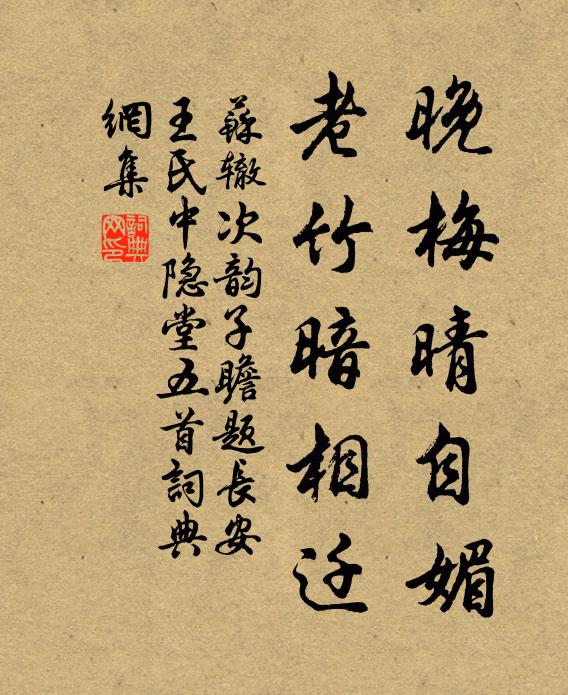 晚梅晴自媚
老竹暗相迁
蘇辙次韵子瞻题長安
王氏中隐堂五首詞典
網集
詞典
网印